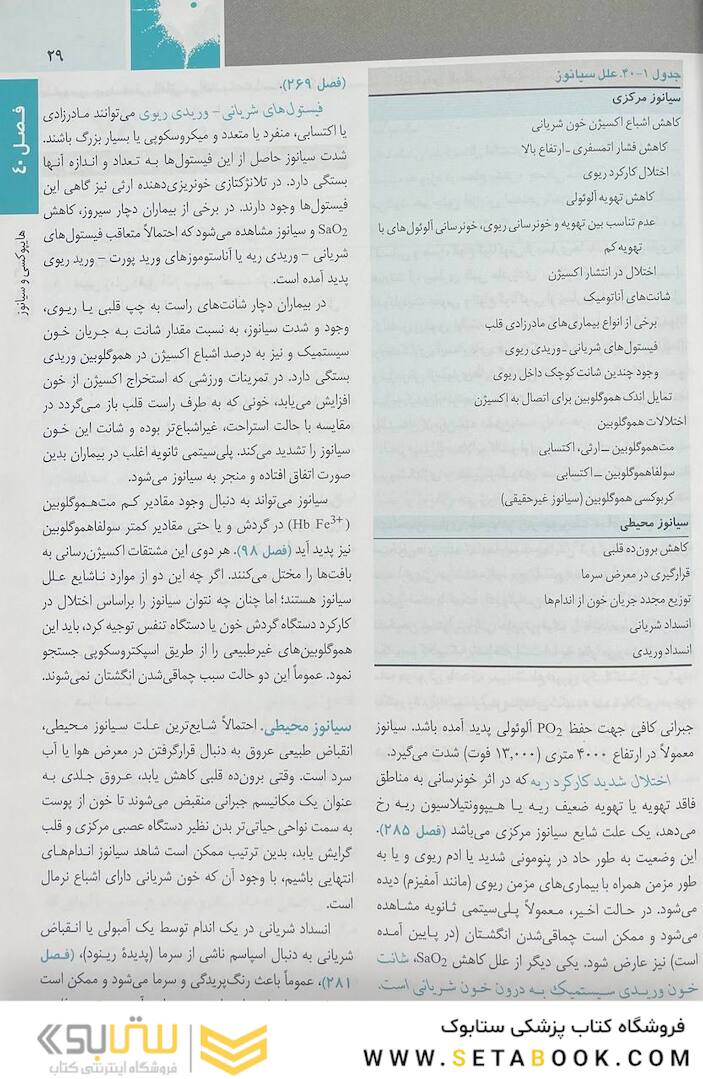 ۲۹
فصل ۴۰
هایپوکسی و سیانوز
جدول ۱-۴۰. علل سیانوز
سیانوز مرکزی
کاهش اشباع اکسیژن خون شریانی
کاهش فشار اتمسفری ـ ارتفاع بالا
اختلال کارکرد ریوی
کاهش تهویه آلوئولی
عدم تناسب بین تهویه و خونرسانی ریوی، خونرسانی آلوئول‌های با
تهویه کم
اختلال در انتشار اکسیژن
شانت‌های آناتومیک
برخی از انواع بیماری‌های مادرزادی قلب
فیستول‌های شریانی ـ وریدی ریوی
وجود چندین شانت کوچک داخل ریوی
تمایل اندک هموگلوبین برای اتصال به اکسیژن
اختلالات هموگلوبین
مت‌هموگلوبین ــ ارثی، اکتسابی
سولفاهموگلوبین ــ اکتسابی
کربوکسی هموگلوبین (سیانوز غیرحقیقی)
سیانوز محیطی
کاهش برون‌ده قلبی
قرارگیری در معرض سرما
توزیع مجدد جریان خون از اندام‌ها
انسداد شریانی
انسداد وریدی
جبرانی کافی جهت حفظ PO2 آلوئولی پدید آمده باشد. سیانوز
معمولاً در ارتفاع ۴۰۰۰ متری (۱۳,۰۰۰ فوت) شدت می‌گیرد.
اختلال شدید کارکرد ریه که در اثر خونرسانی به مناطق
فاقد تهویه یا تهویه ضعیف ریه یا هیپوونتیلاسیون ریه رخ
می‌دهد، یک علت شایع سیانوز مرکزی می‌باشد (فصل ۲۸۵).
این وضعیت به طور حاد در پنومونی شدید یا ادم ریوی و یا به
طور مزمن همراه با بیماری‌های مزمن ریوی (مانند آمفیزم) دیده
می‌شود. در حالت اخیر، معمولاً پلی‌سیتمی ثانویه مشاهده
می‌شود و ممکن است چماقی‌شدن انگشتان (در پایین آمده
است) نیز عارض شود. یکی دیگر از علل کاهش SaO2، شانت
خون وریدی سیستمیک به درون خون شریانی است.
(فصل ۲۶۹).
فیستول‌های شریانی - وریدی ریوی می‌توانند مادرزادی
یا اکتسابی، منفرد یا متعدد و میکروسکوپی یا بسیار بزرگ باشند.
شدت سیانوز حاصل از این فیستول‌ها به تعداد و اندازه آنها
بستگی دارد. در تلانژکتازی خونریزی‌دهنده ارثی نیز گاهی این
فیستول‌ها وجود دارند. در برخی از بیماران دچار سیروز، کاهش
SaO2 و سیانوز مشاهده می‌شود که احتمالاً متعاقب فیستول‌های
شریانی - وریدی ریه یا آناستوموزهای ورید پورت - ورید ریوی
پدید آمده است.
در بیماران دچار شانت‌های راست به چپ قلبی یا ریوی،
وجود و شدت سیانوز، به نسبت مقدار شانت به جریان خون
سیستمیک و نیز به درصد اشباع اکسیژن در هموگلوبین وریدی
بستگی دارد. در تمرینات ورزشی که استخراج اکسیژن از خون
افزایش می‌یابد، خونی که به طرف راست قلب باز می‌گردد در
مقایسه با حالت استراحت، غیراشباع‌تر بوده و شانت این خون
سیانوز را تشدید می‌کند. پلی‌سیتمی ثانویه اغلب در بیماران بدین
صورت اتفاق افتاده و منجر به سیانوز می‌شود.
سیانوز می‌تواند به دنبال وجود مقادیر کم مت‌هموگلوبین
(Hb Fe3+) در گردش و یا حتی مقادیر کمتر سولفاهموگلوبین
نیز پدید آید (فصل ۹۸). هر دوی این مشتقات اکسیژن‌رسانی به
بافت‌ها را مختل می‌کنند. اگر چه این دو از موارد ناشایع علل
سیانوز هستند؛ اما چنان چه نتوان سیانوز را براساس اختلال در
کارکرد دستگاه گردش خون یا دستگاه تنفس توجیه کرد، باید این
هموگلوبین‌های غیرطبیعی را از طریق اسپکتروسکوپی جستجو
نمود. عموماً این دو حالت سبب چماقی‌شدن انگشتان نمی‌شوند.
سیانوز محیطی. احتمالاً شایع‌ترین علت سیانوز محیطی،
انقباض طبیعی عروق به دنبال قرارگرفتن در معرض هوا یا آب
سرد است. وقتی برون‌ده قلبی کاهش یابد، عروق جلدی به
عنوان یک مکانیسم جبرانی منقبض می‌شوند تا خون از پوست
به سمت نواحی حیاتی‌تر بدن نظیر دستگاه عصبی مرکزی و قلب
گرایش یابد، بدین ترتیب ممکن است شاهد سیانوز اندام‌های
انتهایی باشیم، با وجود آن که خون شریانی دارای اشباع نرمال
است.
انسداد شریانی در یک اندام توسط یک آمبولی یا انقباض
شریانی به دنبال اسپاسم ناشی از سرما (پدیدهٔ رینود)، (فصل
۲۸۱)، عموماً باعث رنگ‌پریدگی و سرما می‌شود و ممکن است
فروشگاه کتاب پزشکی ستابوک
WWW.SETABOOK.COM
ستابوک
فروشگاه اینترنتی کتاب